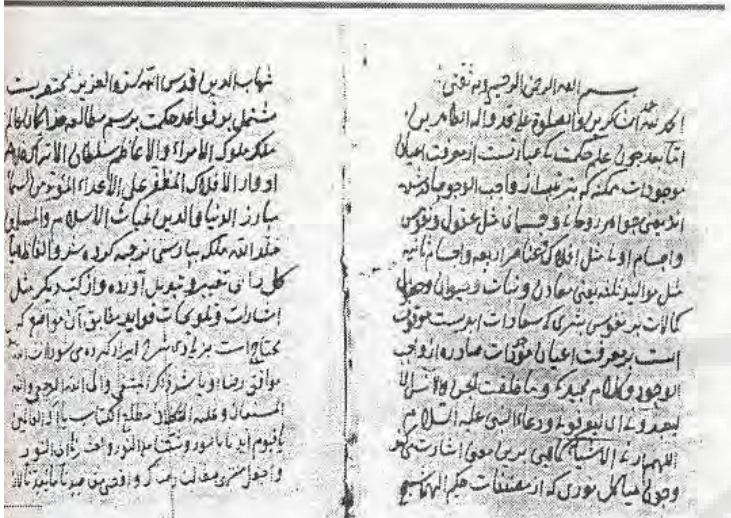 بسم الله الرحمن الرحیم وبه ثقتی
الحمد لله الشاکرین والصلوة علی محمد واله الطاهرین
اما بعد چون علم حکمت عبارتست از معرفت اعیان
موجودات ممکنه که بترتیب از واجب الوجود صادر شده
اند یعنی جواهر روحانی و جسمانی مثل عقول و نفوس
و اجسام اولی مثل افلاک و عناصر اربعه و اجسام ثانیه
مثل موالید ثلثه یعنی معادن و نبات و حیوان و حصول
کمالات بر نفوس بشری که سعادات ابدیست موقوف
است بر معرفت اعیان موجودات صادره از واجب
الوجود و کلام مجید که وما خلقت الجن والانس الا
لیعبدون ای لیعرفون و دعاء النبی علیه السلام
اللهم ارنا الاشیاء کما هی برین معنی اشارت
و چون هیاکل نوری که از مصنفات حکیم الهی
شهاب الدین قدس الله سره العزیز مختصریست
مشتمل بر قواعد حکمت برسم مطالعه
ملک ملوک الامراء والاعاظم سلطان الاتراک
ادوار الافلاک المظفر علی الاعداء الموید من السماء
مبارز الدنیا والدین غیاث الاسلام والمسلمین
خلد الله ملکه بپارسی ترجمه کرده شد والفاظ
کل را بی تغییر و تبدیل آورده و از کتب دیگر مثل
اشارات و تلویحات فواید مطابق آن مواضع که
محتاج است بزیادتی شرح ایراد کرده می شود
موافق رضا او باشد والی الله الرجعی وانه
المستعان وعلیه التکلان مطلع الکتاب یا اله العالمین
یا قیوم ایدنا بالنور وثبتنا علی النور واحشرنا الی النور